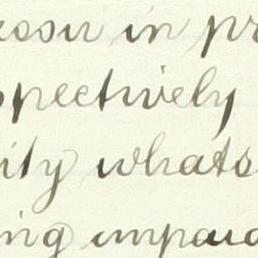 rson in pr
spectively
ity whats
ing impaid